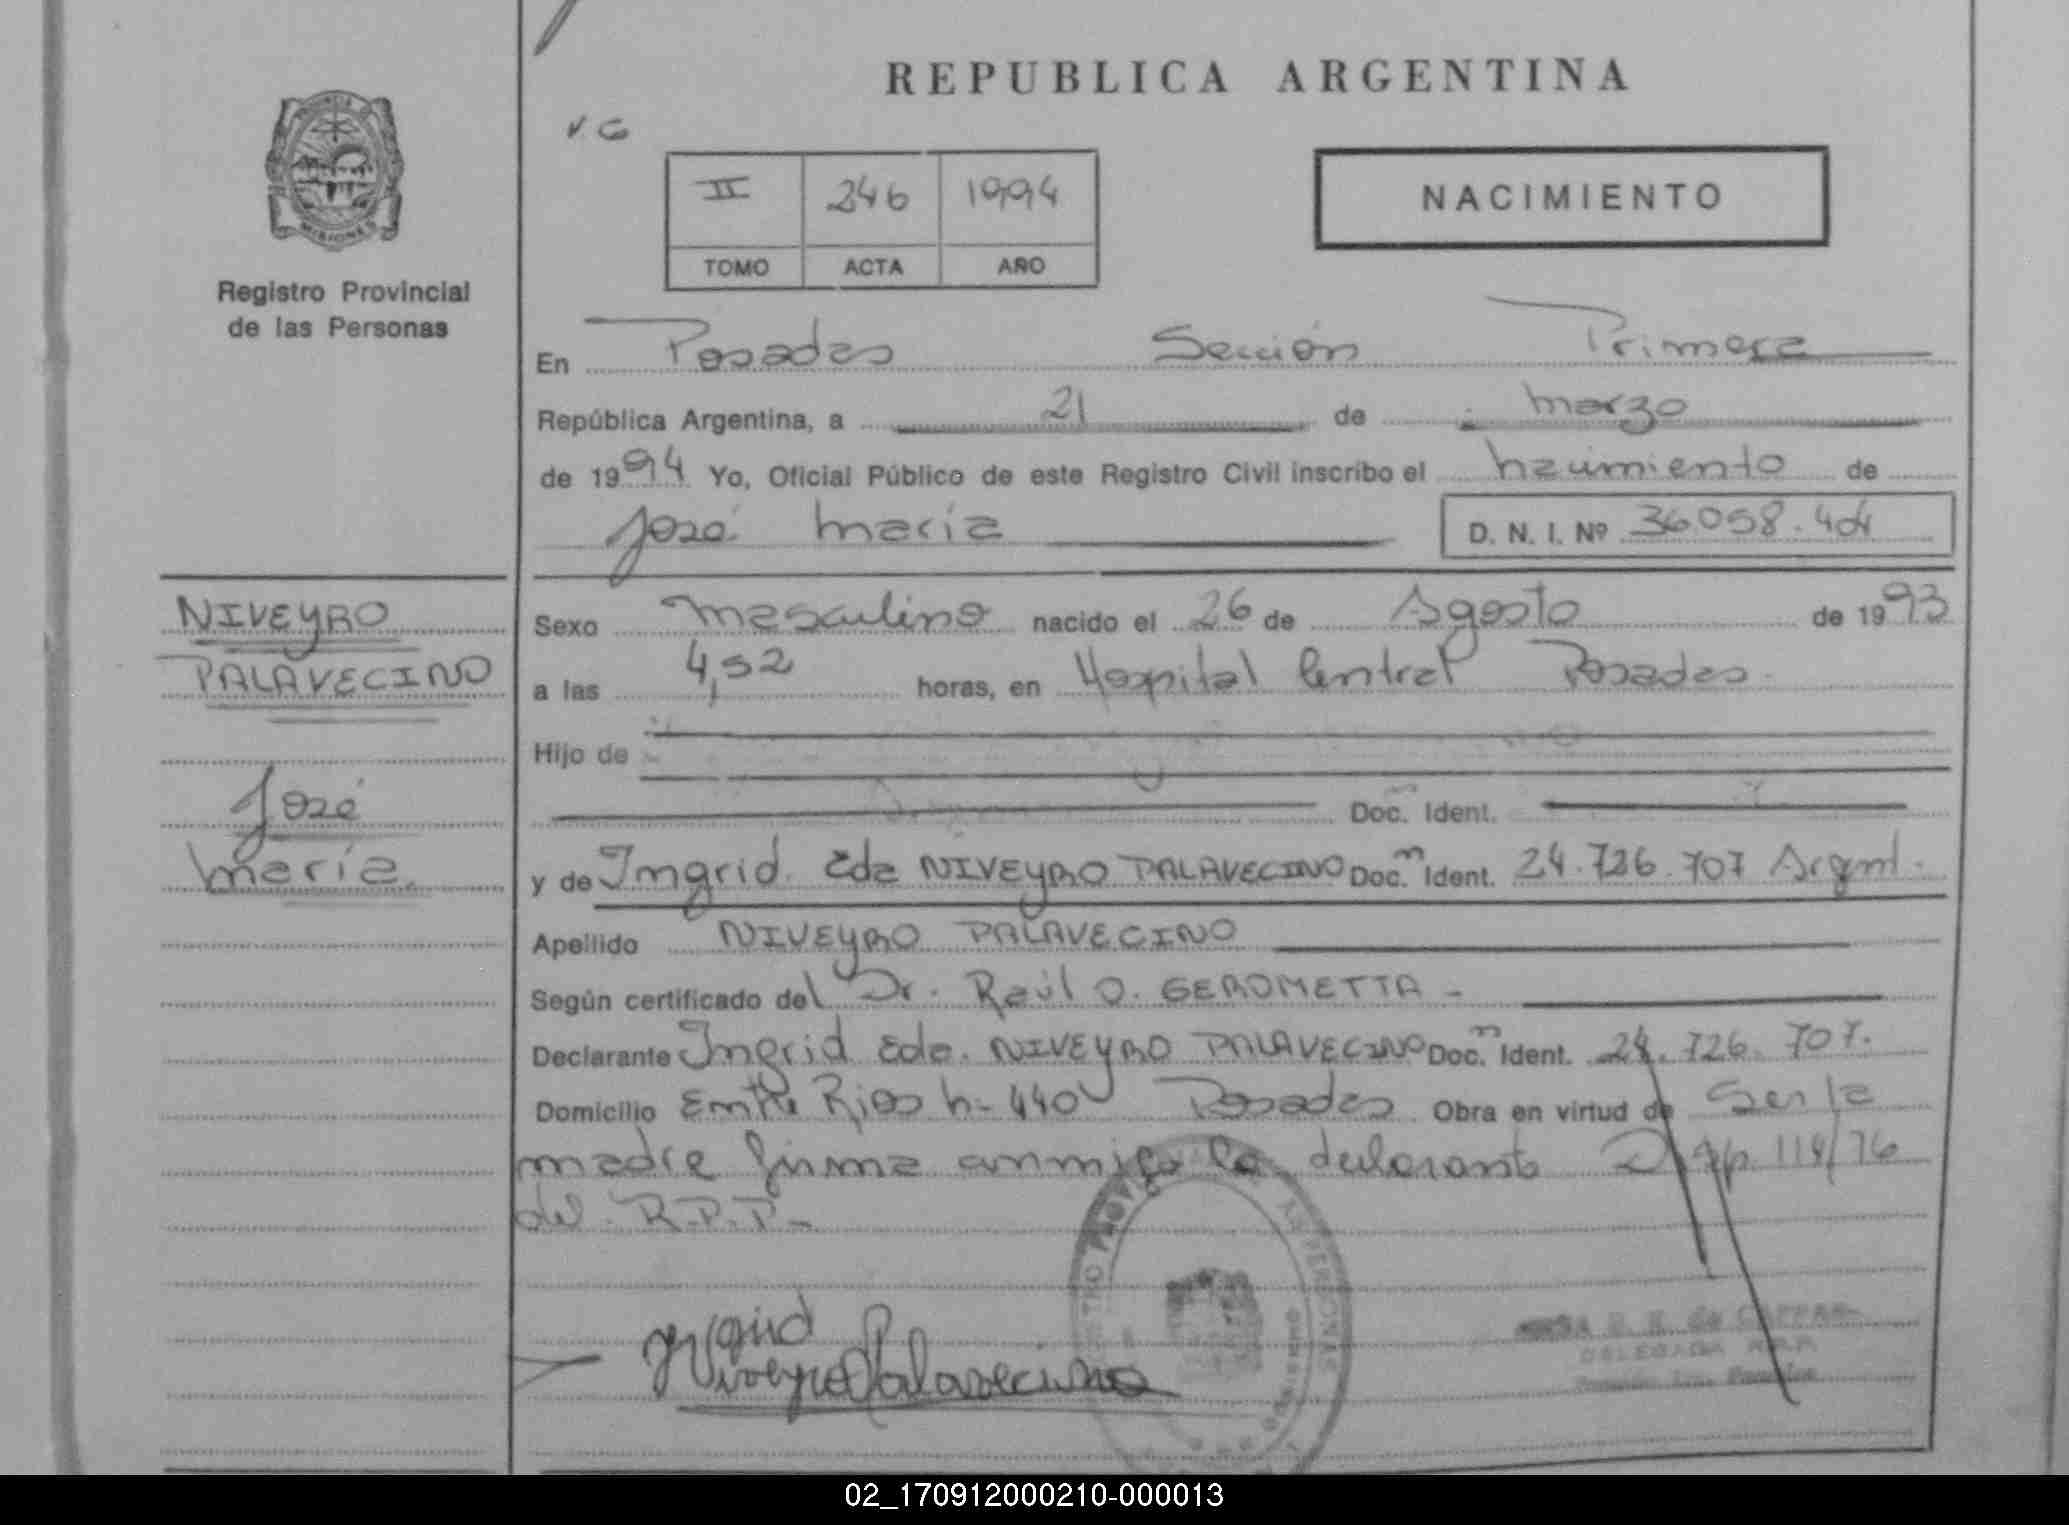 REPUBLICA ARGENTINA
V G
II 246 1994
TOMO ACTA AÑO
NACIMIENTO
MISIONES
Registro Provincial
de las Personas
En Posadas Sección Primera
República Argentina, a 21 de marzo
de 1994 Yo, Oficial Público de este Registro Civil inscribo el nacimiento de
José María D. N. I. Nº 36.058.404
NIVEYRO
PALAVECINO
José
María.
Sexo masculino nacido el 26 de Agosto de 1993
a las 4,52 horas, en Hospital Central Posadas.
Hijo de
Doc. Ident.
y de Ingrid Eda NIVEYRO PALAVECINO Doc. Ident. 24.726.707 Argent.
Apellido NIVEYRO PALAVECINO
Según certificado del Dr. Raúl O. GEROMETTA -
Declarante Ingrid Eda. NIVEYRO PALAVECINO Doc. Ident. 24.726.707.
Domicilio Entre Rios n- 440 Posadas Obra en virtud de Ser la
madre firma conmigo la declarante Disp. 114/76
del R.P.P-
Ingrid
Niveyro Palavecino
DELEGADA R.P.P.
02_170912000210-000013